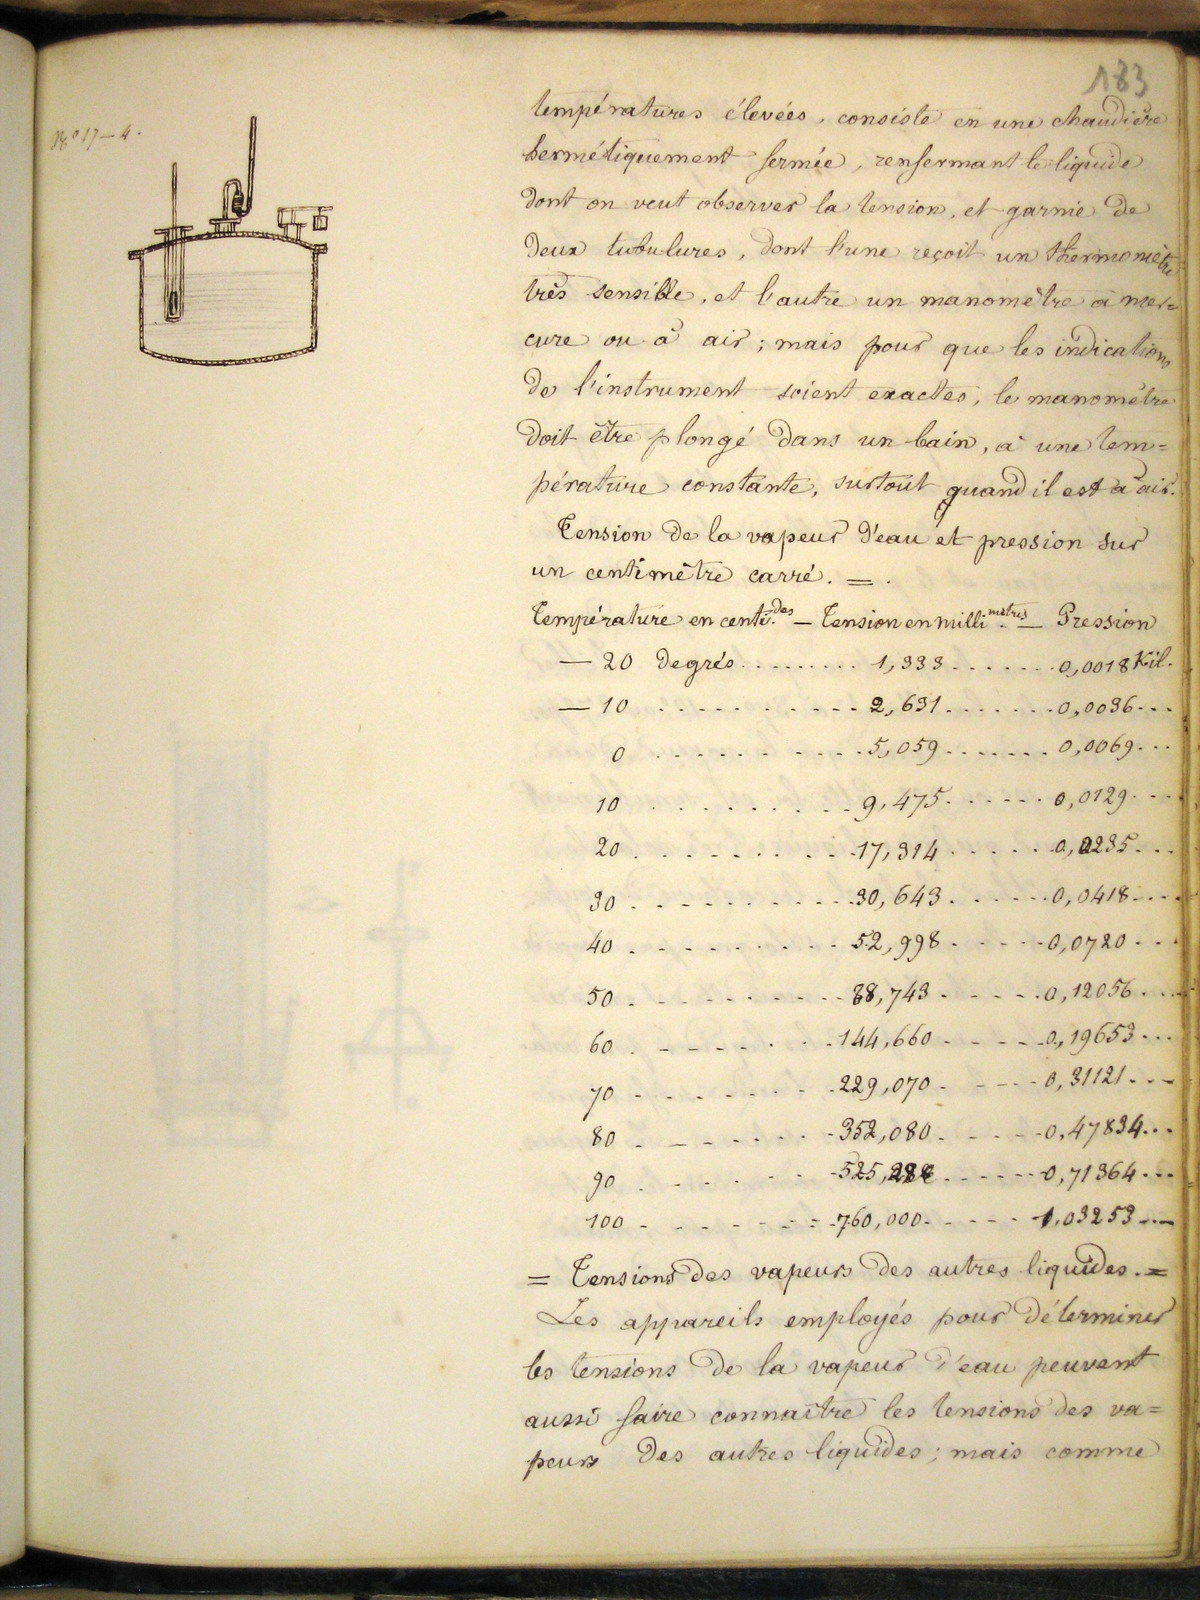 183
N° 17 — 4.
températures élevées, consiste en une chaudière
hermétiquement fermée, renfermant le liquide
dont on veut observer la tension, et garnie de
deux tubulures, dont l'une reçoit un thermomètre
très sensible, et l'autre un manomètre à mer=
cure ou à air ; mais pour que les indications
de l'instrument soient exactes, le manomètre
doit être plongé dans un bain, à une tem=
pérature constante, surtout quand il est à air.
Tension de la vapeur d'eau et pression sur
un centimètre carré. = .
Température en centi.des — Tension en milli.mètres — Pression
— 20 degrés ......... 1,333 ....... 0,0018 Kil.
— 10 .......... 2,631 ....... 0,0036 ...
0 .......... 5,059 ....... 0,0069 ...
10 ......... 9,475 ...... 0,0129 ....
20 .......... 17,314 ..... 0,0235 ...
30 .......... 30,643 ...... 0,0418 ....
40 .......... 52,998 ..... 0,0720 ...
50 .......... 88,743 ..... 0,12056 ....
60 ........ 144,660 ..... 0,19653 ...
70 ........ 229,070 ..... 0,31121 ...
80 ........ 352,080 ..... 0,47834 ...
90 ....... 525, ...... 0,71364 ...
100 ....... 760,000 ..... 1,03253 ...
= Tensions des vapeurs des autres liquides. =
Les appareils employés pour déterminer
les tensions de la vapeur d'eau peuvent
aussi faire connaître les tensions des va=
peurs des autres liquides ; mais comme